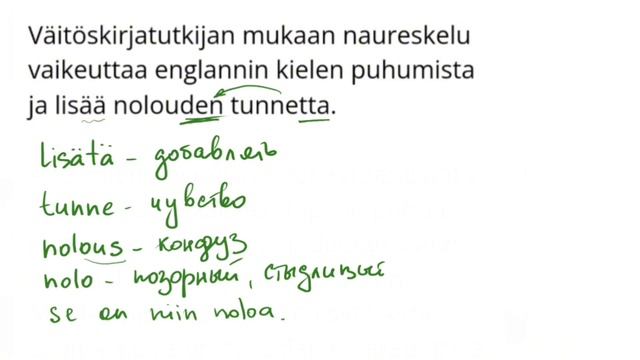 Väitöskirjatutkijan mukaan naureskelu
vaikeuttaa englannin kielen puhumista
ja lisää nolouden tunnetta.
lisätä - добавлять
tunne - чувство
nolous - кондуз
nolo - позорный, стыдливый
se on niin noloa.